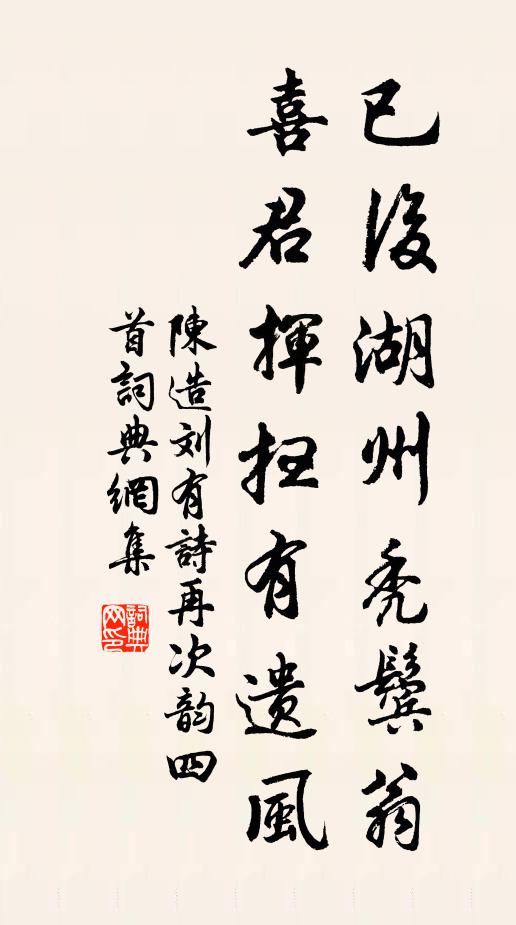 已後湖州禿鬢翁
喜君揮抂有遺風
陳造刘有詩再次韵四
首詞典網集
詞典网印